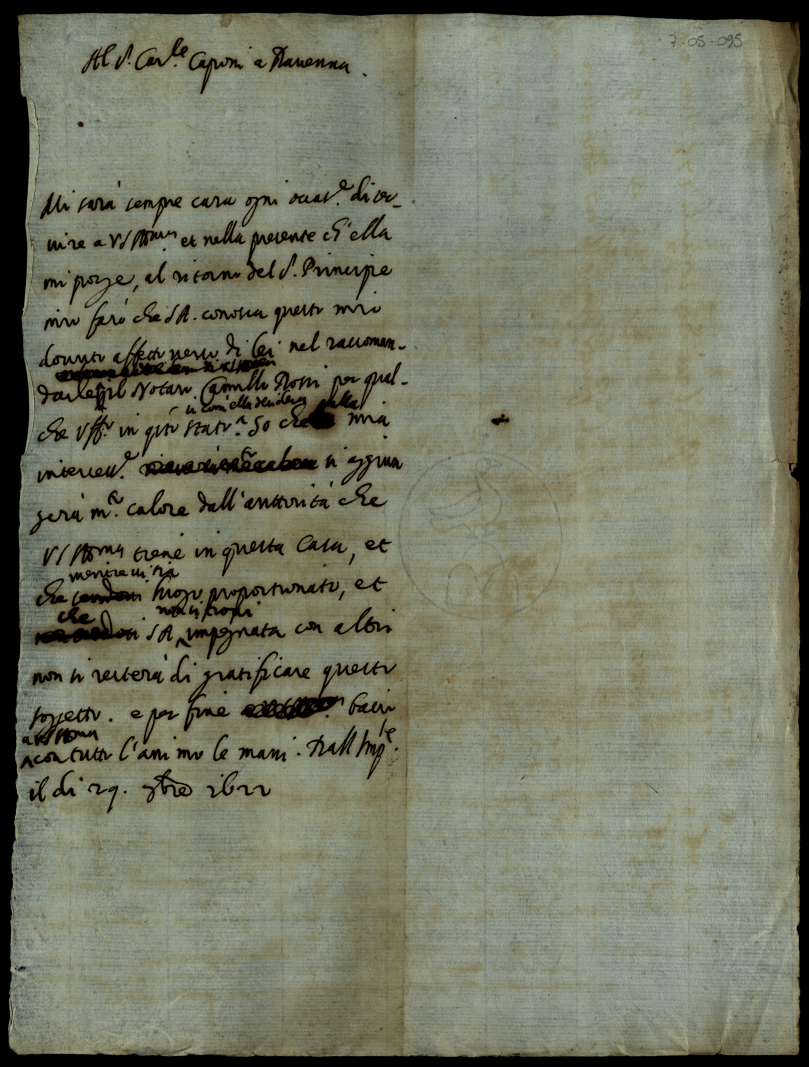 7-05-095
Al S.r Car.le Caponi a Ravenna.
Mi sarà sempre cara ogni occas.e di ser-
vire a VS Ill.ma et nella presente ch'ella
mi porge, al ritorno del S. Principe
mio farò che SA. conosca questo mio
dovuto affetto verso di lei nel raccoman-
darle il Notaro Camillo Rossi per qual-
si com'ella desidera
che uff.o in q.to stato. So che alla mia
intercess.e si aggiun
gerà m.o calore dall'auttorità che
VS Ill.ma tiene in questa Casa, et
mentre vi sia
che luogo proportionato, et
che non si trovi
SA impegnata con altri
non si resterà di gratificare questo
soggetto. e per fine bacio
a VS Ill.ma
con tutto l'animo le mani. Dall'Imp.le
il di 29. 9bre 1622